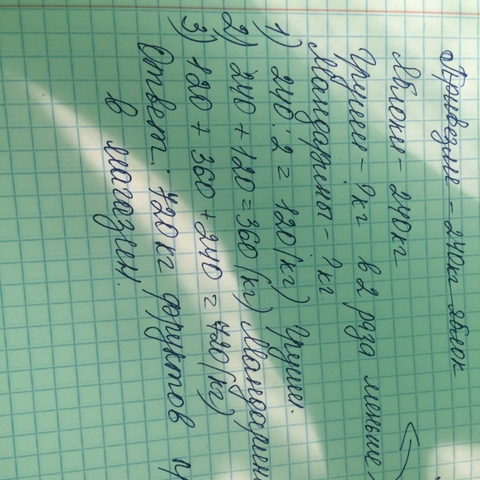 Привезли - 240кг яблок
Яблоки - 240кг
Груши - ?кг в 2 раза меньше
Мандарины - ? кг
1) 240:2 = 120(кг) Груши.
2) 240 + 120 = 360 (кг) Мандарин
3) 120 + 360 + 240 = 720(кг)
Ответ: 720кг фруктов
в магазин.